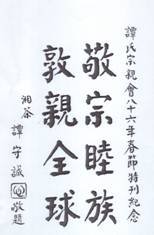 譚氏宗親會八十六年春節特刊紀念
敬宗睦族
敦親全球
湘茶 譚守誠 敬題